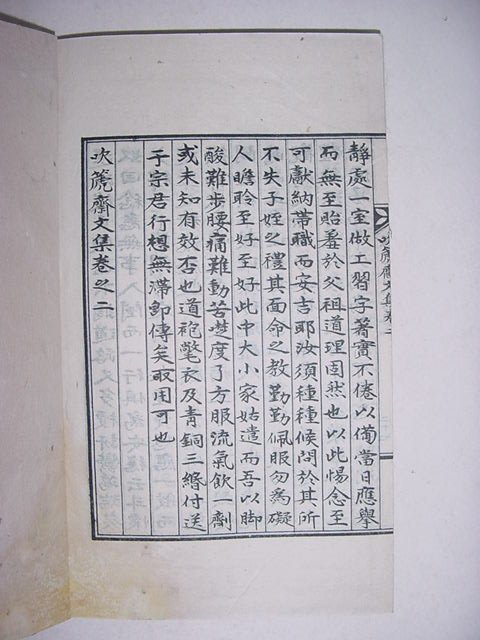 吹篪齋文集卷二
靜處一室做工習字著實不倦以備當日應擧
而無至貽羞於父祖道理固然也以此惕念至
可獻納帶職而安吉耶汝須種種候問於其所
不失子姪之禮其面命之敎勤勤佩服勿爲礙
人瞻聆至好至好此中大小家姑遣而吾以脚
酸難步腰痛難動苦楚度了方服流氣飮一劑
或未知有效否也道袍氅衣及靑銅三緡付送
于宗君行想無滯卽傳矣取用可也
吹篪齋文集卷之二